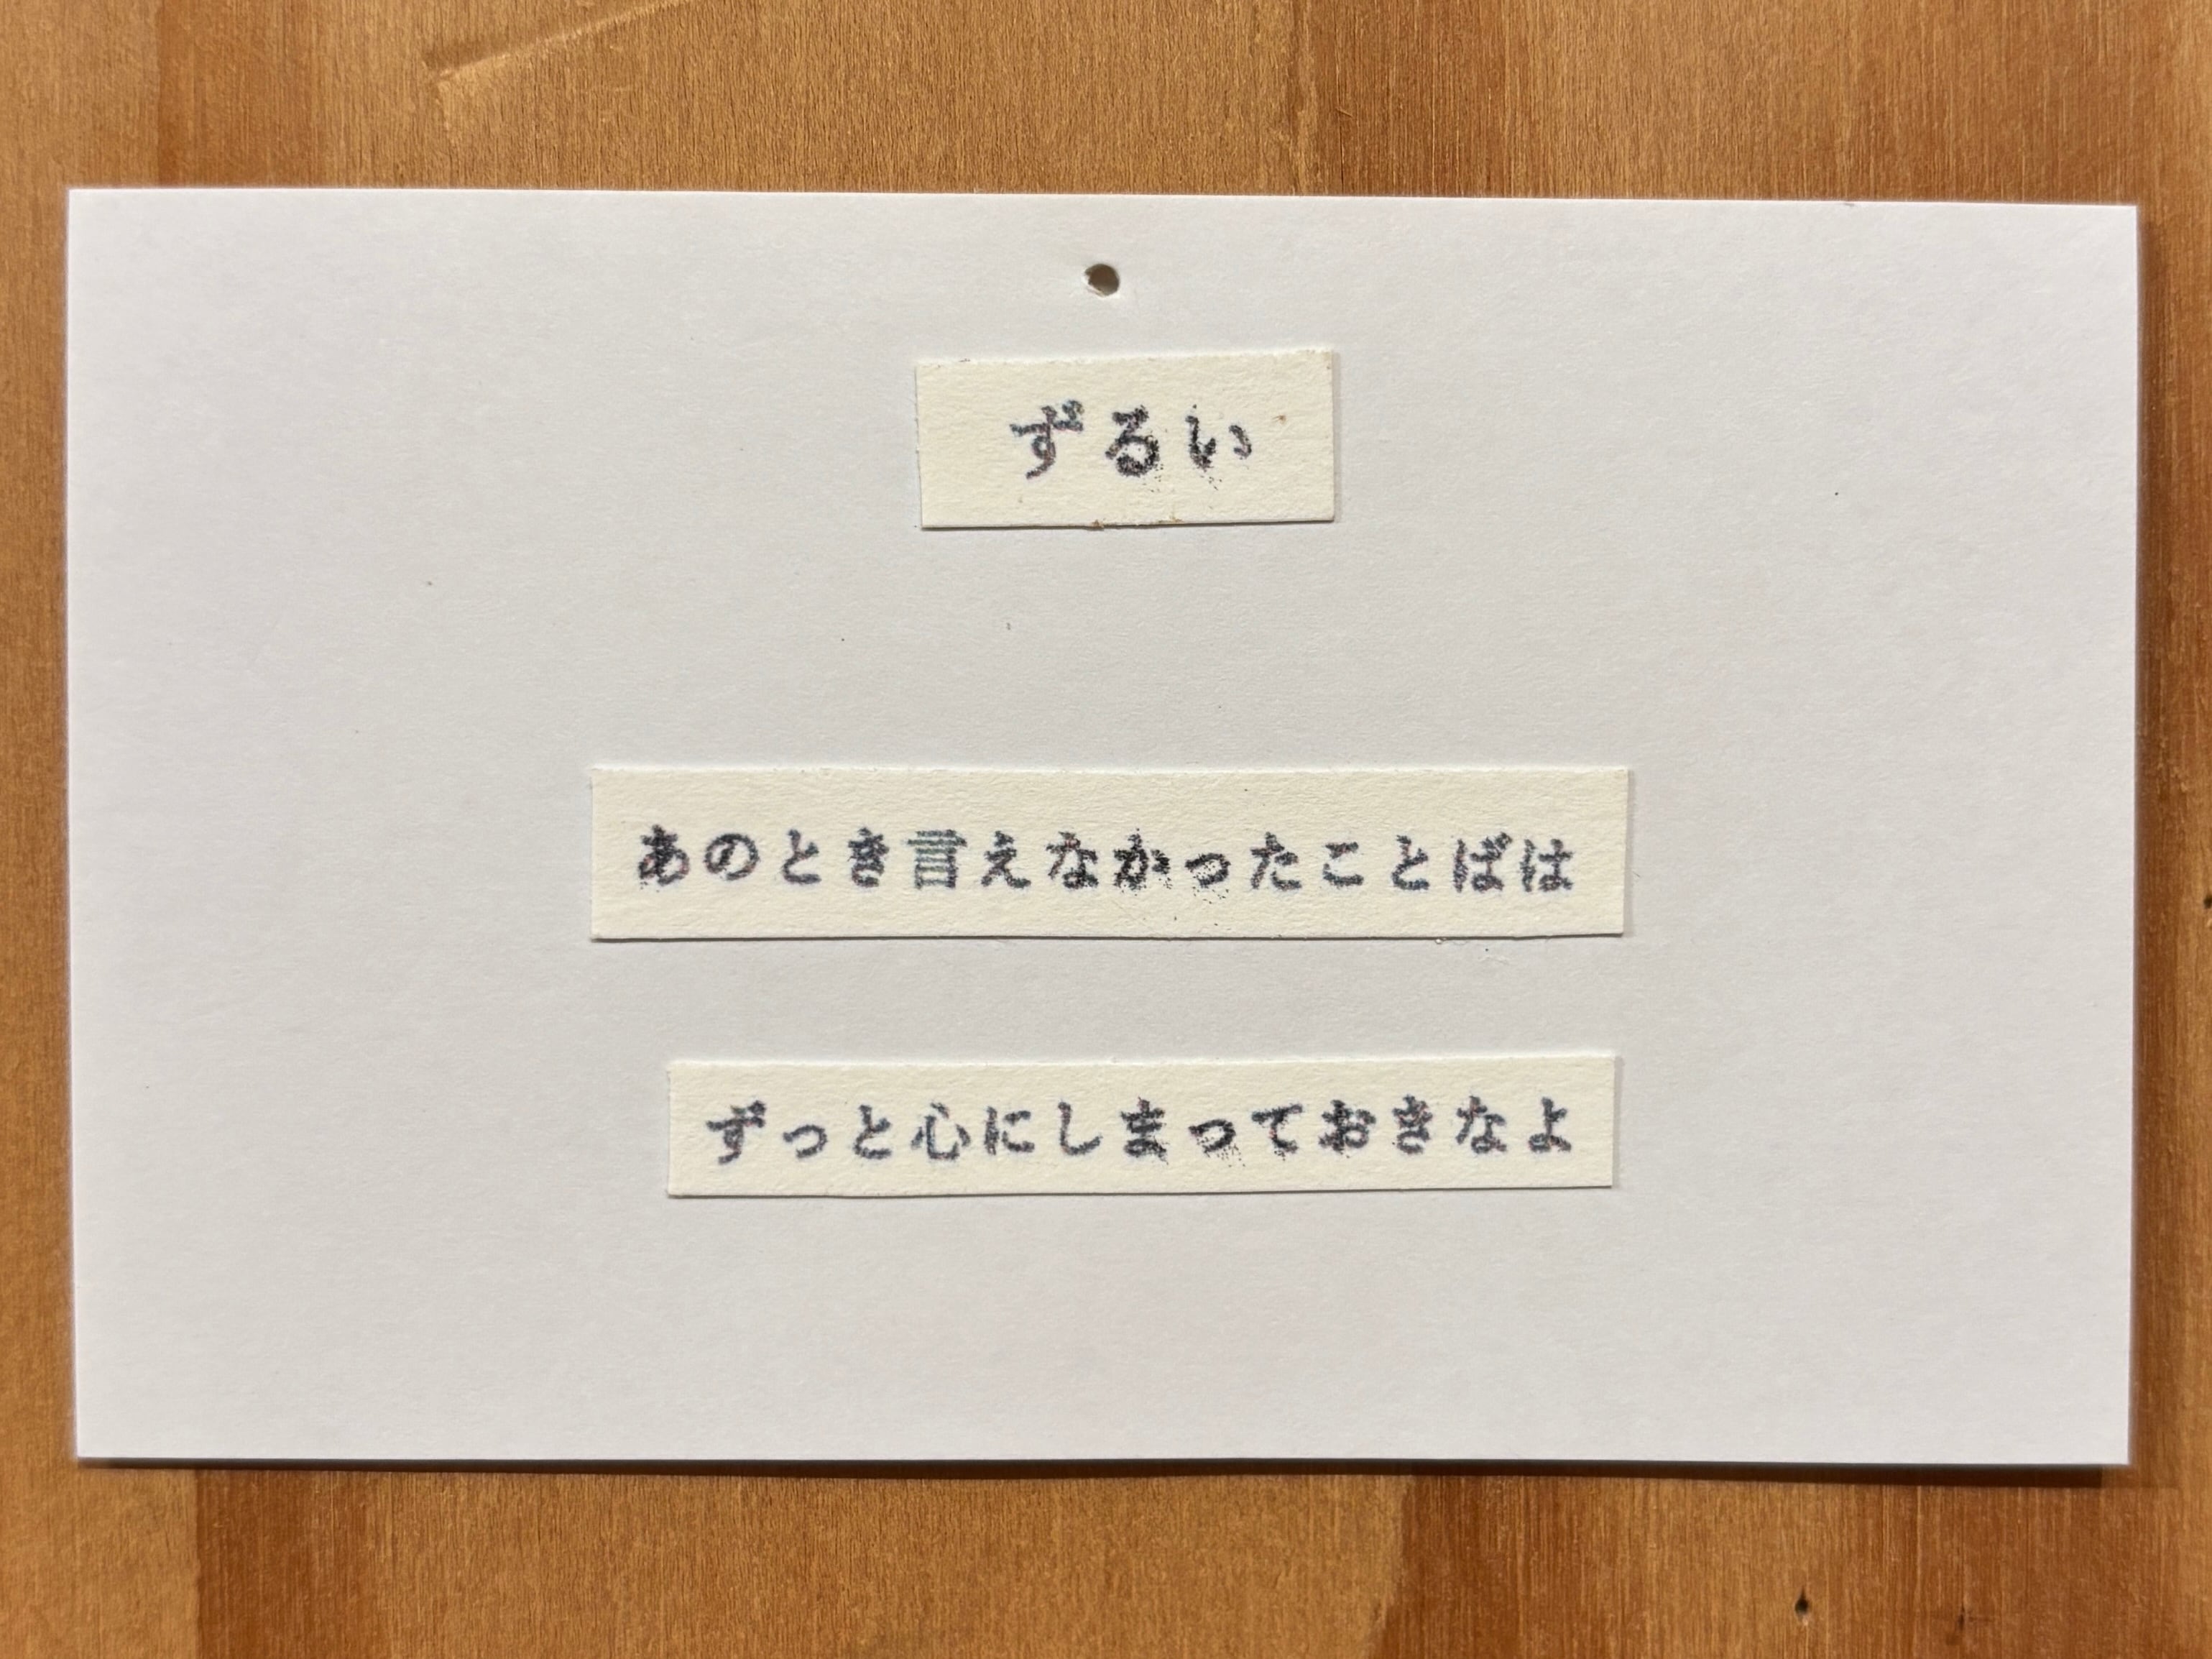 ずるい
あのとき言えなかったことばは
ずっと心にしまっておきなよ